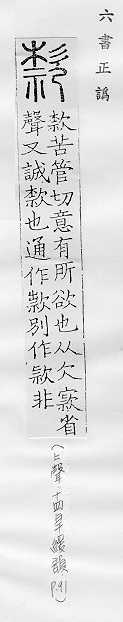 六書正譌
款苦管切意有所欲也从欠窾省
聲又誠款也通作款別作欵非
(上聲 十四旱緩韻 P.91)